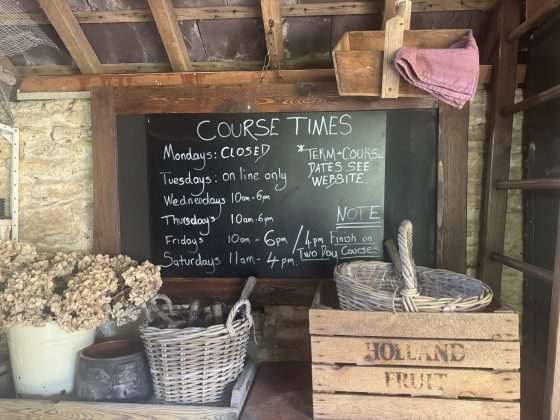 COURSE TIMES
Mondays: CLOSED
Tuesdays: on line only
Wednesdays 10am-6pm
Thursdays 10am-6pm
Fridays 10am-6pm / 4pm Finish on
Saturdays 11am-4pm. Two Day Courses
*TERM+COURSE
DATES SEE
WEBSITE.
NOTE
HOLLAND
FRUIT